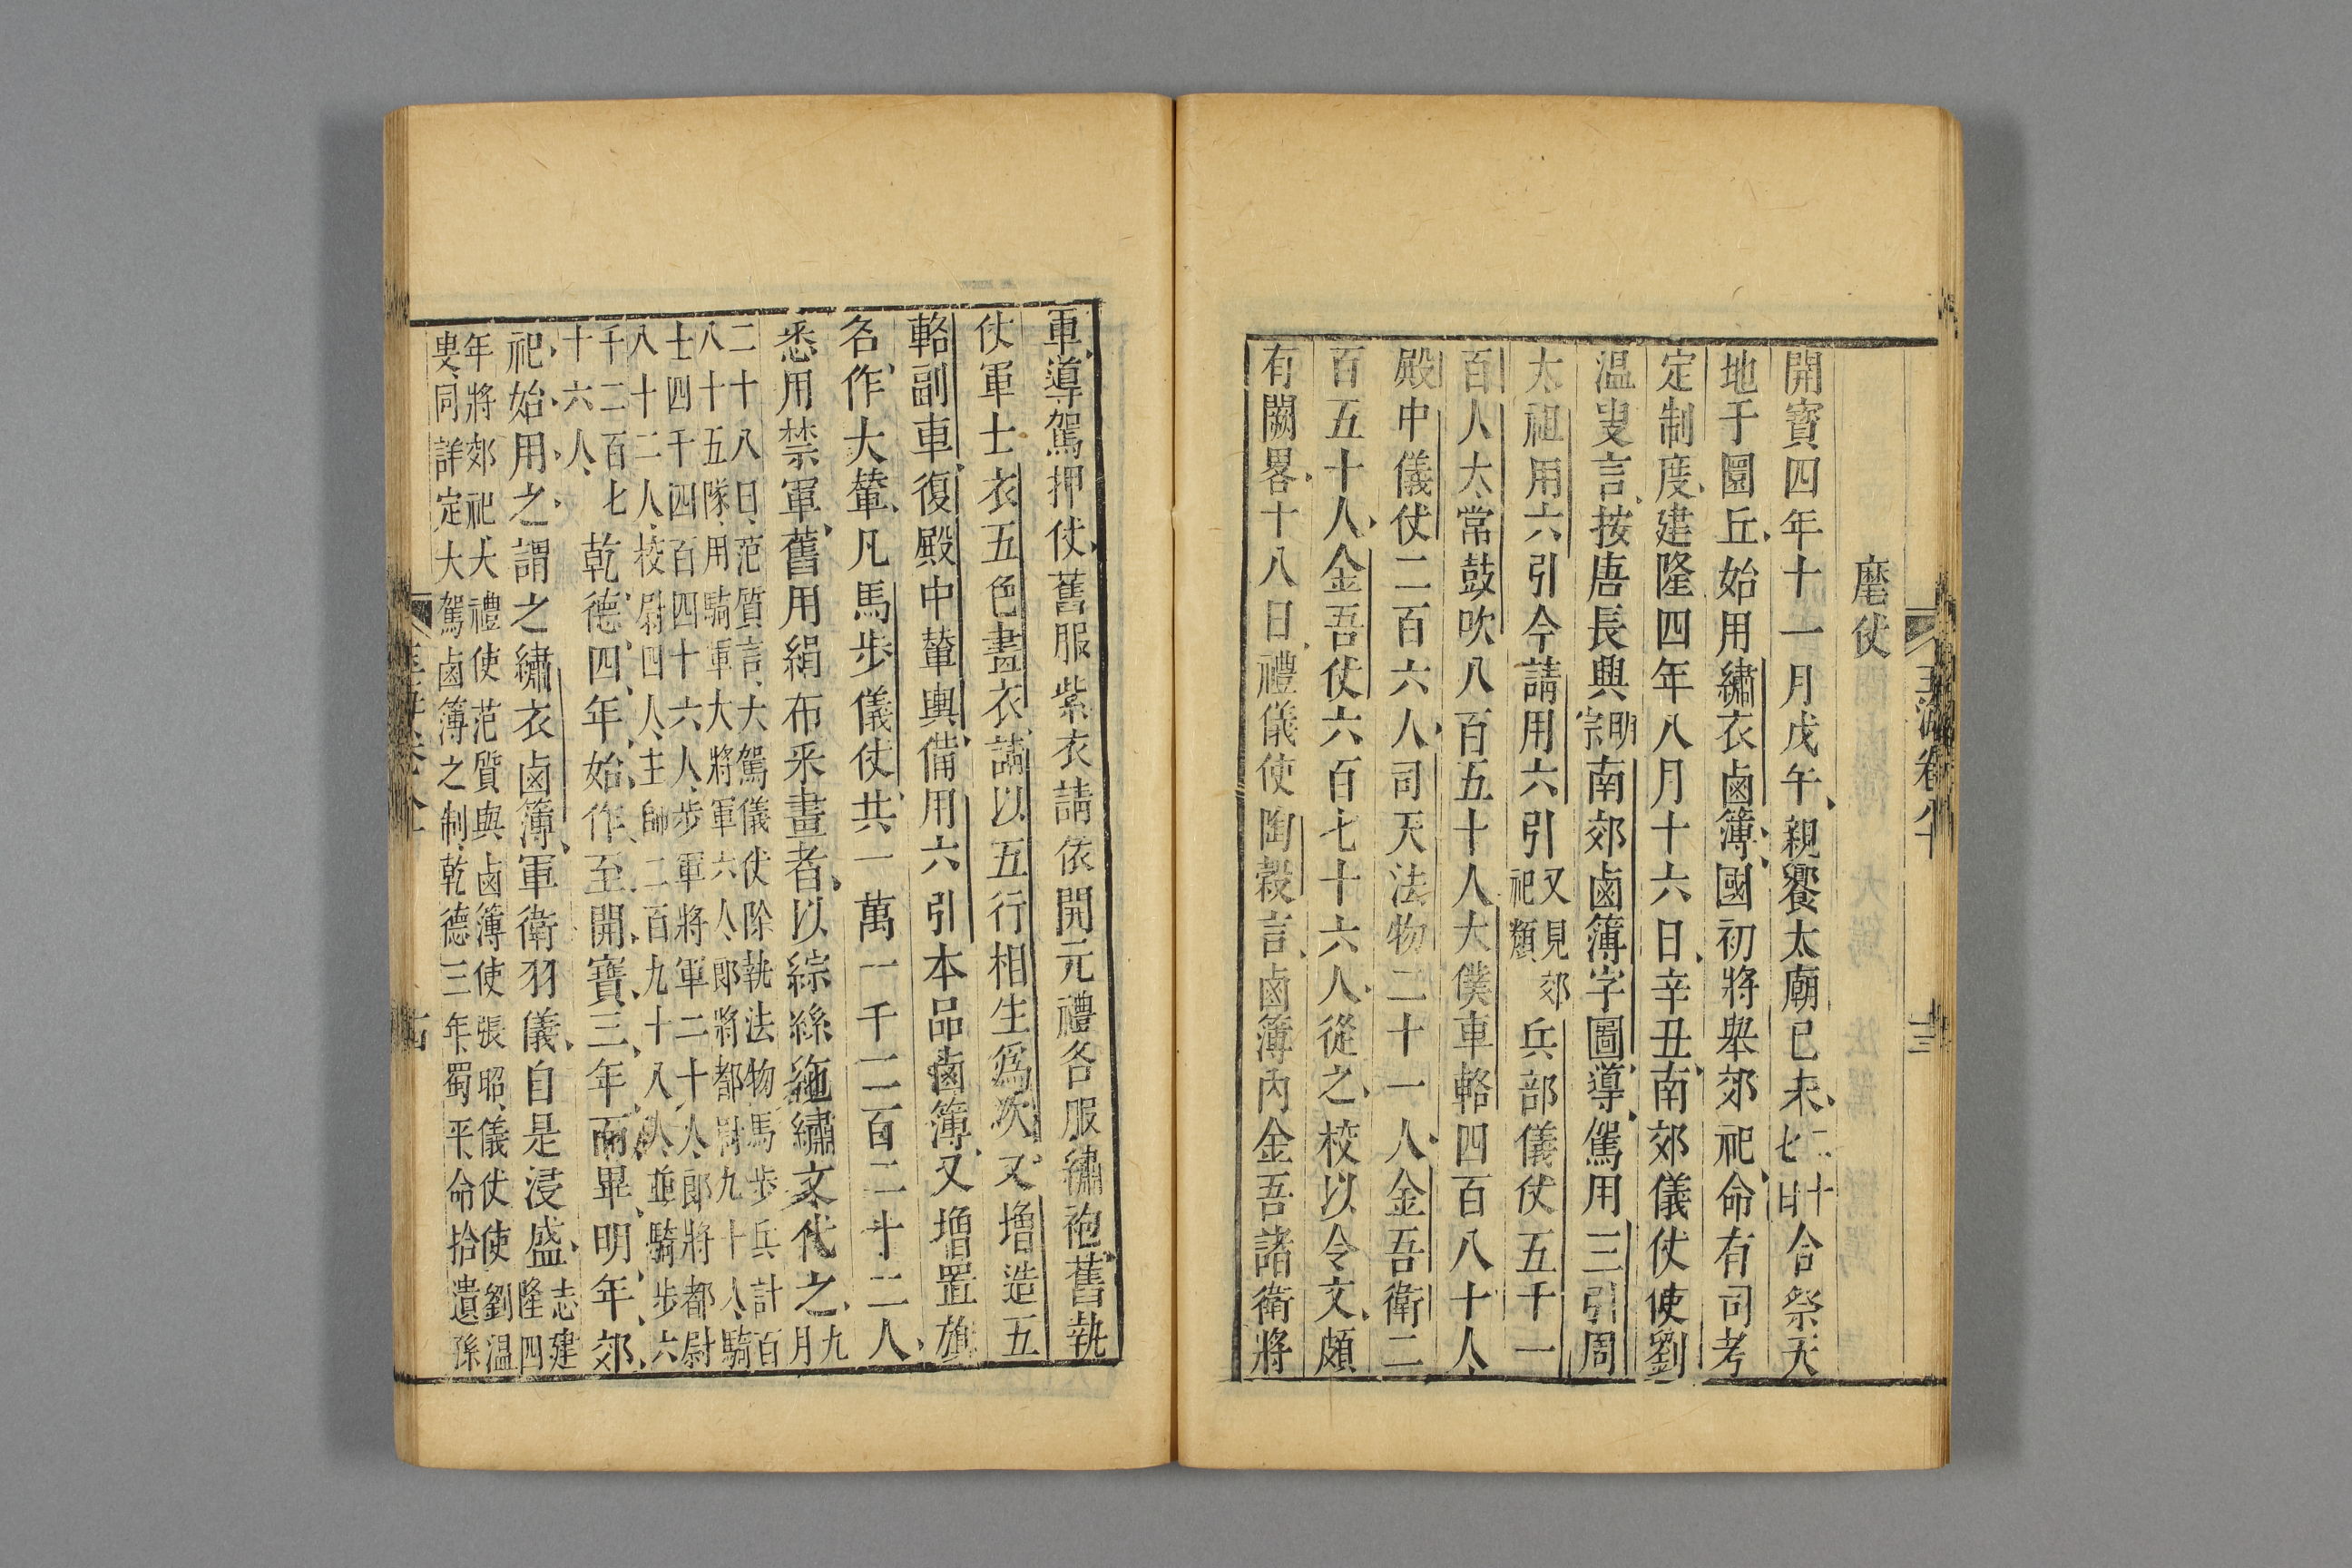 麾仗
開寶四年十一月戊午親饗太廟已未二十七日合祭天
地于圜丘始用繡衣鹵簿國初將舉郊祀命有司考
定制度建隆四年八月十六日辛丑南郊儀仗使劉
溫叟言按唐長興明宗南郊鹵簿字圖導駕用三引周
太祖用六引今請用六引又見郊祀類兵部儀仗五千一
百人太常鼓吹八百五十人大僕車輅四百八十人
殿中儀仗二百六人司天法物二十一人金吾衛二
百五十人金吾仗六百七十六人從之校以令文頗
有闕畧十八日禮儀使陶穀言鹵簿內金吾諸衛將
軍導駕押仗舊服紫衣請依開元禮各服繡袍舊執
仗軍士衣五色畫衣請以五行相生爲次又增造五
輅副車復殿中輦輿備用六引本品鹵簿又增置旗
名作大輦凡馬步儀仗共一萬一千二百二十二人
悉用禁軍舊用絹布釆畫者以綜絲絁繡文代之九月
二十八日范質言大駕儀仗除執法物馬步兵計百
八十五隊用騎軍大將軍六人郎將都尉九十人騎
士四千四百四十六人步軍將軍二十人郎將都尉
八十二人校尉四人主帥二百九十八人並騎步六
千二百七十六人乾德四年始作至開寶三年而畢明年郊
祀始用之謂之繡衣鹵簿軍衛羽儀自是浸盛志建隆四
年將郊祀大禮使范質與鹵簿使張昭儀仗使劉溫
叟同詳定大駕鹵簿之制乾德三年蜀平命拾遺孫